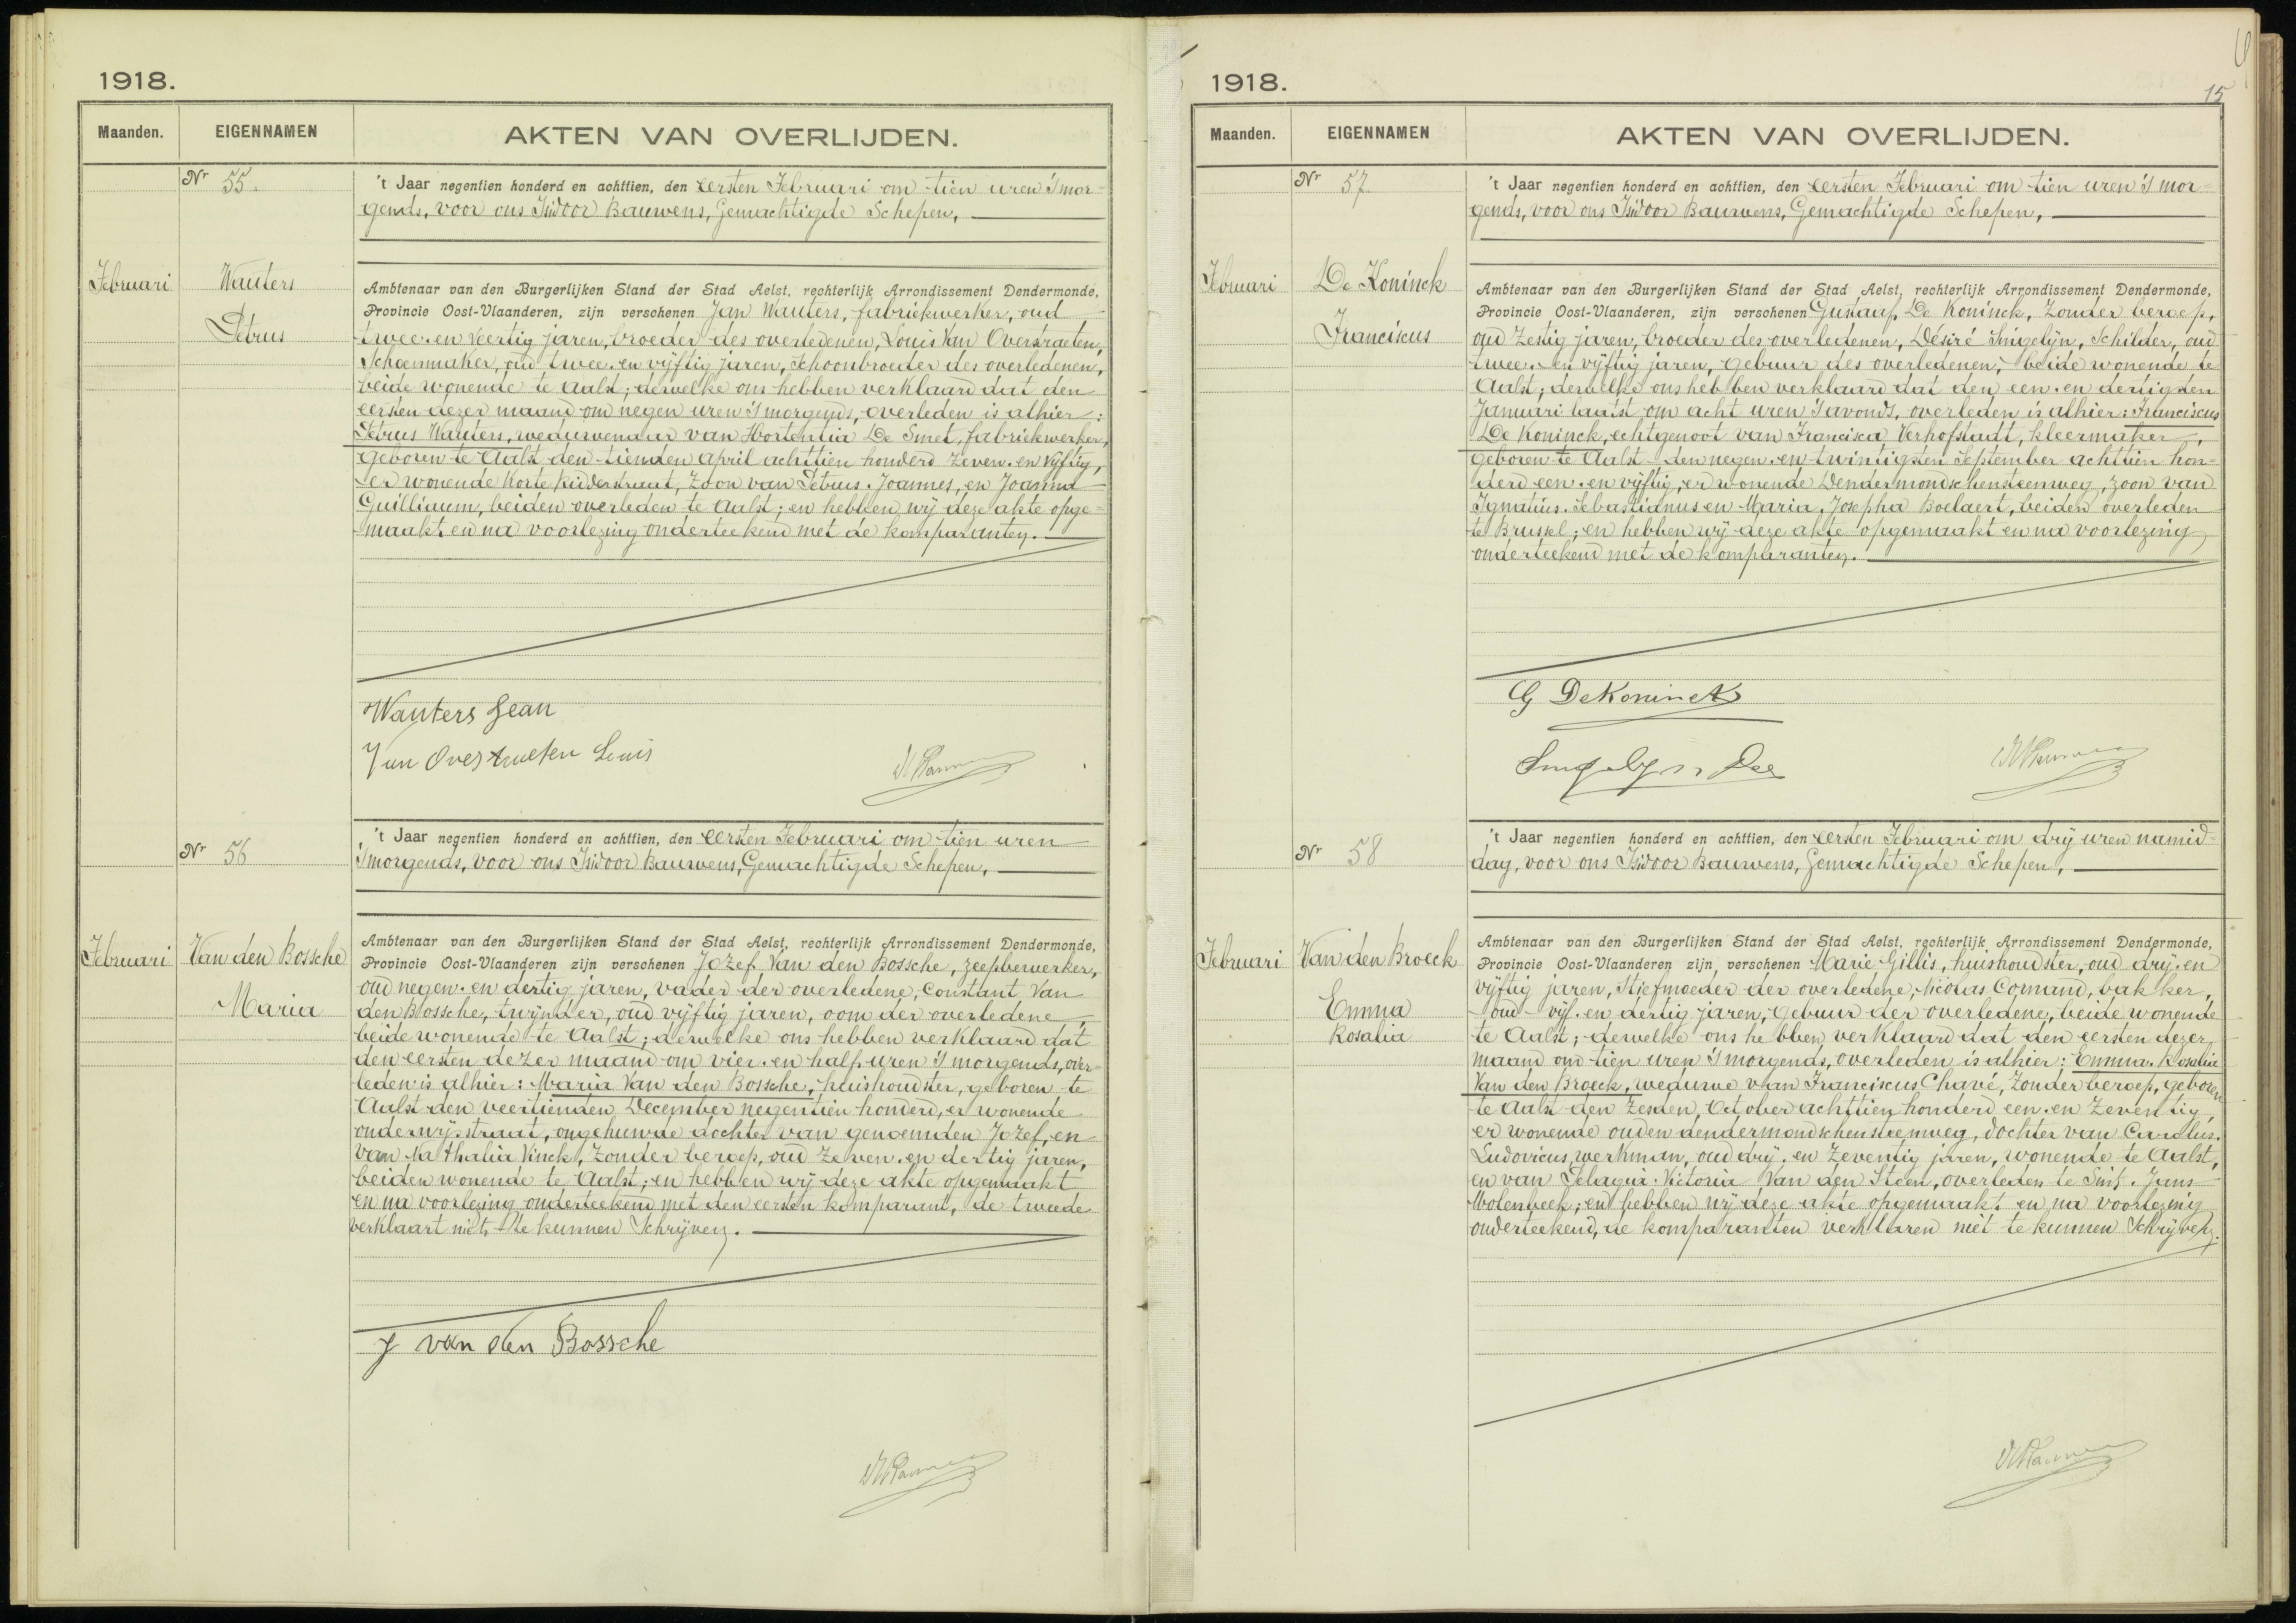 1918.
Maanden.
EIGENNAMEN
AKTEN VAN OVERLIJDEN.
Nr 55.
't Jaar negentien honderd en achttien, den eersten Februari om tien uren 's mor-
gends, voor ons Isidoor Bauwens, Gemachtigde Schepen,
Februari
Wauters
Petrus
Ambtenaar van den Burgerlijken Stand der Stad Aelst, rechterlijk Arrondissement Dendermonde,
Provincie Oost-Vlaanderen, zijn verschenen Jan Wauters, fabriekwerker, oud
twee-en-veertig jaren, broeder des overledenen, Louis Van Overstraeten,
Schoenmaker, oud twee-en vijftig jaren, Schoonbroeder des overledenen,
beide wonende te Aalst; derwelke ons hebben verklaard dat den
eersten dezer maand om negen uren 's morgends, overleden is alhier:
Petrus Wauters, weduwenaar van Hortentia De Smet, fabriekwerker,
geboren te Aalst den tienden April achttien honderd zeven-en vijftig,
er wonende Korte Ridderstraat, Zoon van Petrus-Joannes, en Joanna
Guilliaum, beiden overleden te Aalst; en hebben wij deze akte opge-
maakt en na voorlezing onderteekend met de komparanten.
Wauters Jean
Van Overstraeten Louis
Nr 56
't Jaar negentien honderd en achttien, den eersten Februari om tien uren
's morgends, voor ons Isidoor Bauwens, Gemachtigde Schepen,
Februari
Van den Bossche
Maria
Ambtenaar van den Burgerlijken Stand der Stad Aelst, rechterlijk Arrondissement Dendermonde,
Provincie Oost-Vlaanderen zijn verschenen Jozef Van den Bossche, zeepbewerker,
oud negen-en dertig jaren, vader der overledene, Constant Van
den Bossche, twijnder, oud vijftig jaren, oom der overledene,
beide wonende te Aalst; derwelke ons hebben verklaard dat
den eersten dezer maand om vier-en half uren 's morgends, over-
leden is alhier: Maria Van den Bossche, huishoudster, geboren te
Aalst den veertienden December negentien honderd, er wonende
onderwijsstraat, ongehuwde dochter van genoemden Jozef, en
van Nathalia Vinck, zonder beroep, oud zeven-en dertig jaren,
beiden wonende te Aalst; en hebben wij deze akte opgemaakt
en na voorlezing onderteekend met den eersten komparant, de tweede
verklaart niet te kunnen Schrijven.
J van den Bossche
1918.
15
Maanden.
EIGENNAMEN
AKTEN VAN OVERLIJDEN.
Nr 57
't Jaar negentien honderd en achttien, den eersten Februari om tien uren 's mor-
gends, voor ons Isidoor Bauwens, Gemachtigde Schepen,
Februari
De Koninck
Franciscus
Ambtenaar van den Burgerlijken Stand der Stad Aelst, rechterlijk Arrondissement Dendermonde,
Provincie Oost-Vlaanderen, zijn verschenen Gustaaf De Koninck, Zonder beroep,
oud Zestig jaren, broeder des overledenen, Désiré Singelijn, Schilder, oud
twee-en vijftig jaren, gebuur des overledenen, beide wonende te
Aalst; derwelke ons hebben verklaard dat den een-en dertigsten
Januari laatst om acht uren 's avonds, overleden is alhier: Franciscus
De Koninck, echtgenoot van Francisca Verhofstadt, kleermaker,
geboren te Aalst den negen-en-twintigsten September achttien hon-
derd een-en vijftig, er wonende Dendermondschensteenweg, zoon van
Ignatius-Sebastianus en Maria-Josepha Boelaert, beiden overleden
te Brussel; en hebben wij deze akte opgemaakt en na voorlezing
onderteekend met de komparanten.
G DeKoninck
Singelijn Des
Nr 58
't Jaar negentien honderd en achttien, den eersten Februari om drij uren namid-
dag, voor ons Isidoor Bauwens, Gemachtigde Schepen,
Februari
Van den Broeck
Emma
Rosalia
Ambtenaar van den Burgerlijken Stand der Stad Aelst, rechterlijk Arrondissement Dendermonde,
Provincie Oost-Vlaanderen zijn verschenen Marie Gillis, huishoudster, oud drij-en
vijftig jaren, Stiefmoeder der overledene, Nicolas Cornand, bakker,
oud vijf-en dertig jaren, gebuur der overledene, beide wonende
te Aalst; derwelke ons hebben verklaard dat den eersten dezer
maand om tien uren 's morgends, overleden is alhier: Emma-Rosalia
Van den Broeck, weduwe van Franciscus Chavé, Zonder beroep, geboren
te Aalst den Zesden October achttien honderd een-en Zeventig,
er wonende ouden dendermondschensteenweg, dochter van Carolus-
Ludovicus, werkman, oud drij-en Zeventig jaren, wonende te Aalst,
en van Pelagia-Victoria Van den Steen, overleden te Sint-Jans
Molenbeek; en hebben wij deze akte opgemaakt en na voorlezing
onderteekend, de komparanten verklaren niet te kunnen Schrijven.